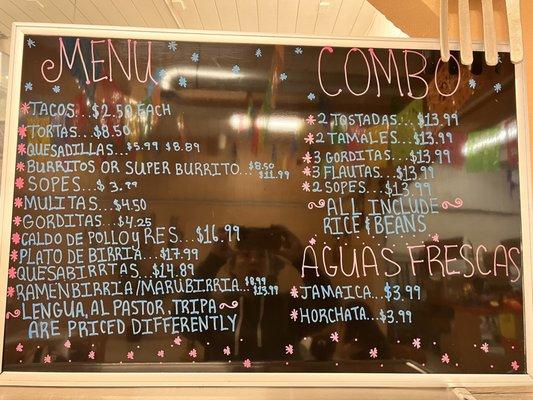 MENU
TACOS...$2.50 EACH
TORTAS...$8.50
QUESADILLAS...$5.99 $8.89
BURRITOS OR SUPER BURRITO...$8.50 $11.99
SOPES...$3.99
MULITAS...$4.50
GORDITAS...$4.25
CALDO DE POLLO y RES...$16.99
PLATO DE BIRRIA...$17.99
QUESABIRRTAS...$14.89
RAMENBIRRIA/MARUBIRRIA...$13.99
LENGUA, AL PASTOR, TRIPA
ARE PRICED DIFFERENTLY
COMBO
2 TOSTADAS...$13.99
2 TAMALES...$13.99
3 GORDITAS...$13.99
3 FLAUTAS...$13.99
2 SOPES...$13.99
ALL INCLUDE
RICE & BEANS
AGUAS FRESCAS
JAMAICA...$3.99
HORCHATA...$3.99